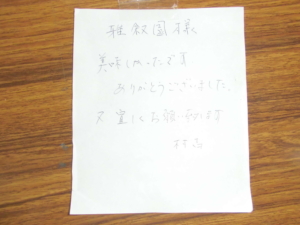 雅叙園様
美味しかったです
ありがとうございました。
又宜しくお願い致します